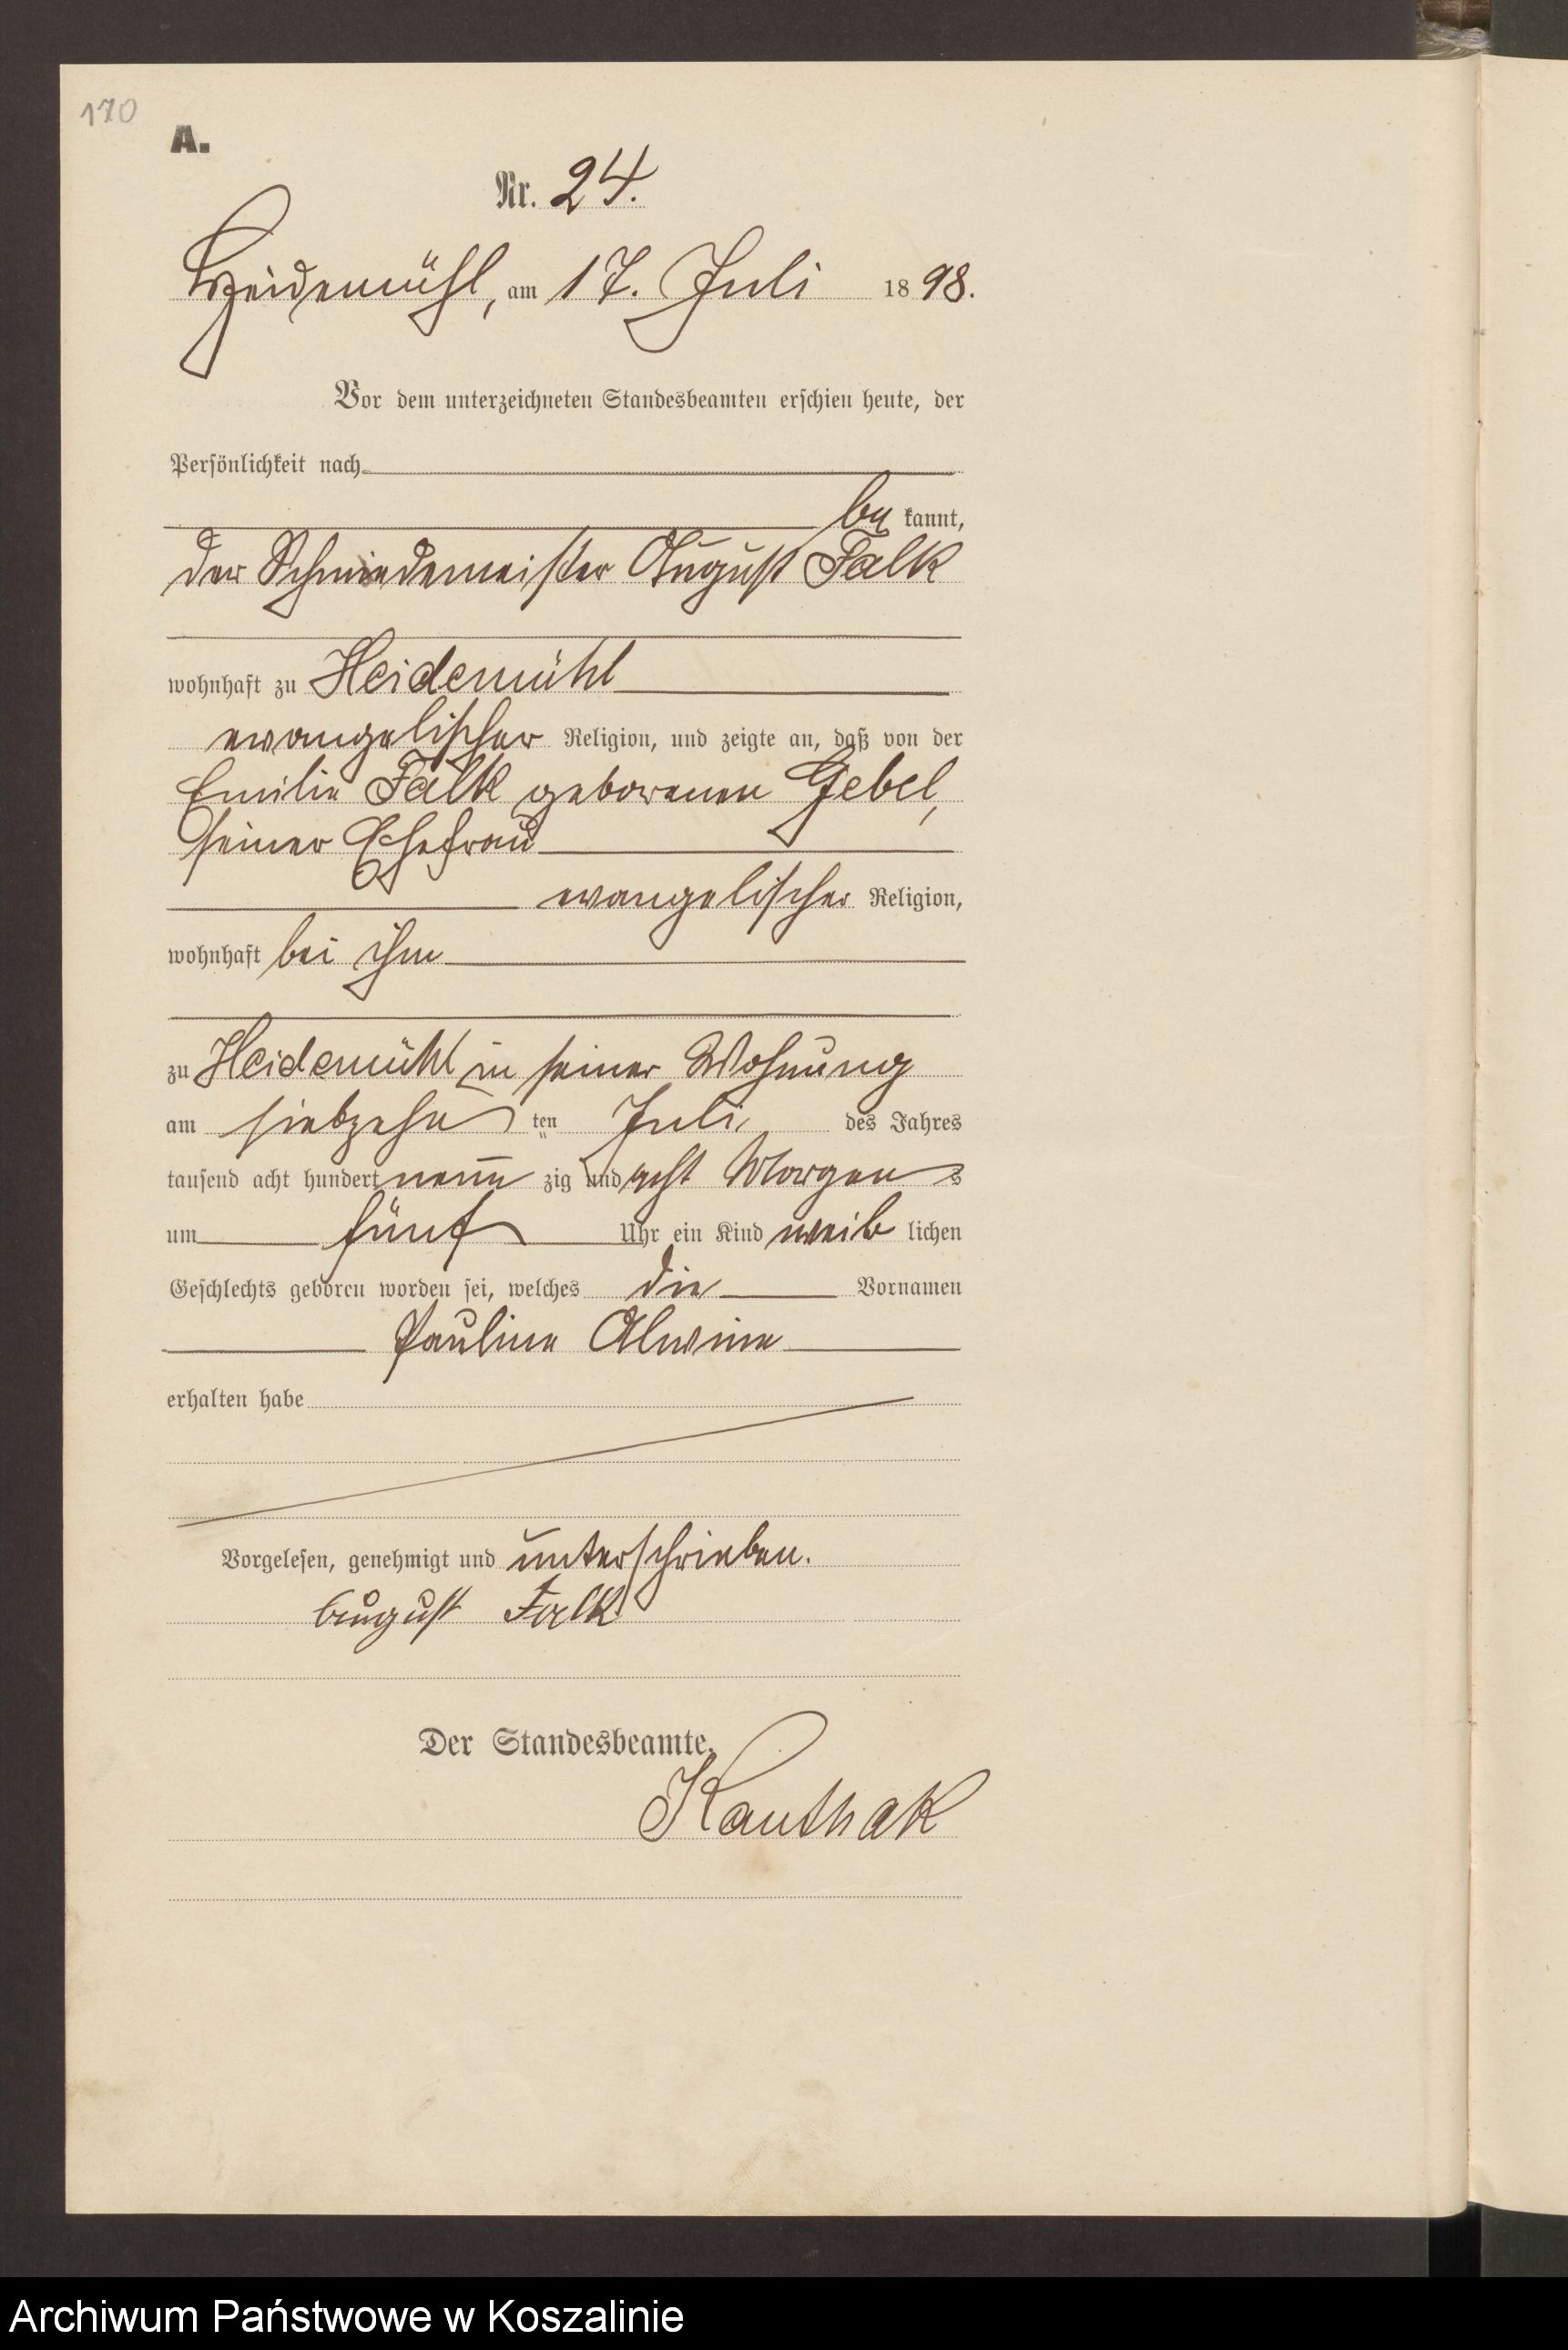 170
A.
Nr. 24.
Heidemühl, am 17. Juli 1898.
Vor dem unterzeichneten Standesbeamten erschien heute, der
Persönlichkeit nach
be kannt,
der Schmiedemeister August Falk
wohnhaft zu Heidemühl
evangelischer Religion, und zeigte an, daß von der
Emilie Falk geborenen Gebel,
seiner Ehefrau
evangelischer Religion,
wohnhaft bei ihm
zu Heidemühl in seiner Wohnung
am siebzehn ten Juli, des Jahres
tausend acht hundert neun zig und acht Morgen s
um fünf Uhr ein Kind weib lichen
Geschlechts geboren worden sei, welches die Vornamen
Pauline Alwine
erhalten habe
Vorgelesen, genehmigt und unterschrieben.
August Falk
Der Standesbeamte.
Kauthak
Archiwum Państwowe w Koszalinie